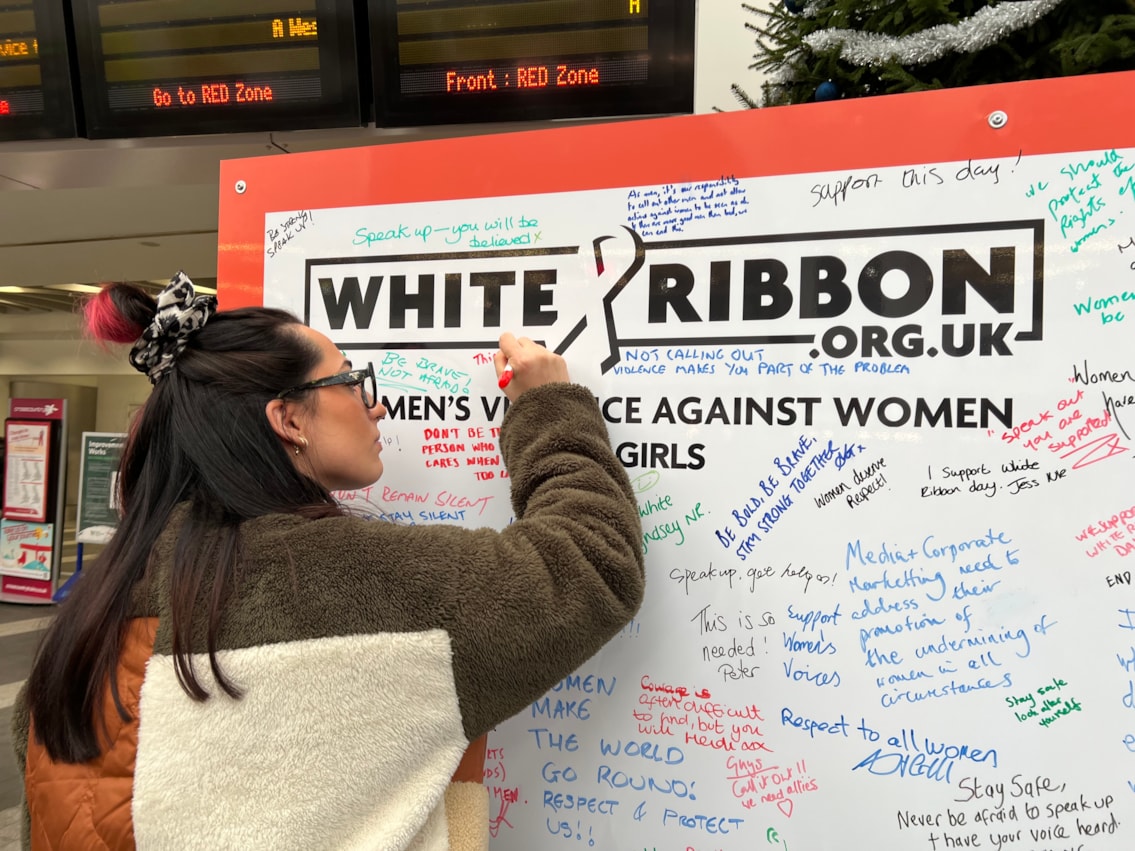 A Wes
A
Go to RED Zone
Front : RED Zone
BE STRONG!
SPEAK UP!
Speak up - you will be
believed x
As men, it's our responsibility
to call out other men and not allow
actions against women to be seen as ok.
If there are more good men than bad, we
can end this.
Support this day!
We should
protect the
Rights of
women.
WHITE RIBBON
.ORG.UK
Women
be
BE BRAVE!
NOT AFRAID!
This
NOT CALLING OUT
VIOLENCE MAKES YOU PART OF THE PROBLEM
MEN'S VI CE AGAINST WOMEN
GIRLS
DON'T BE T
PERSON WHO
CARES WHEN
TOO L
"Women
have
"speak out
you are
supported"
DON'T REMAIN SILENT
STAY SILENT
White
Lyndsey NR.
BE BOLD. BE BRAVE.
STAY STRONG TOGETHER
Women deserve
Respect!
I Support White
Ribbon day. Jess NR
WE SUPPOR
WHITE R
DA
END
Speak up. get help!
Media + Corporate
Marketting need to
address their
promotion of
the undermining of
women in all
circumstances
This is so
needed!
Peter
Support
Women's
Voices
Stay safe
look after
yourself
WOMEN
MAKE
THE WORLD
GO ROUND!
RESPECT & PROTECT
US!!
Courage is
often difficult
to find, but you
will Heidi xox
Guys
Call it out!!
we need allies
Respect to all women
Stay Safe,
Never be afraid to speak up
+ have your voice heard.
MEN.